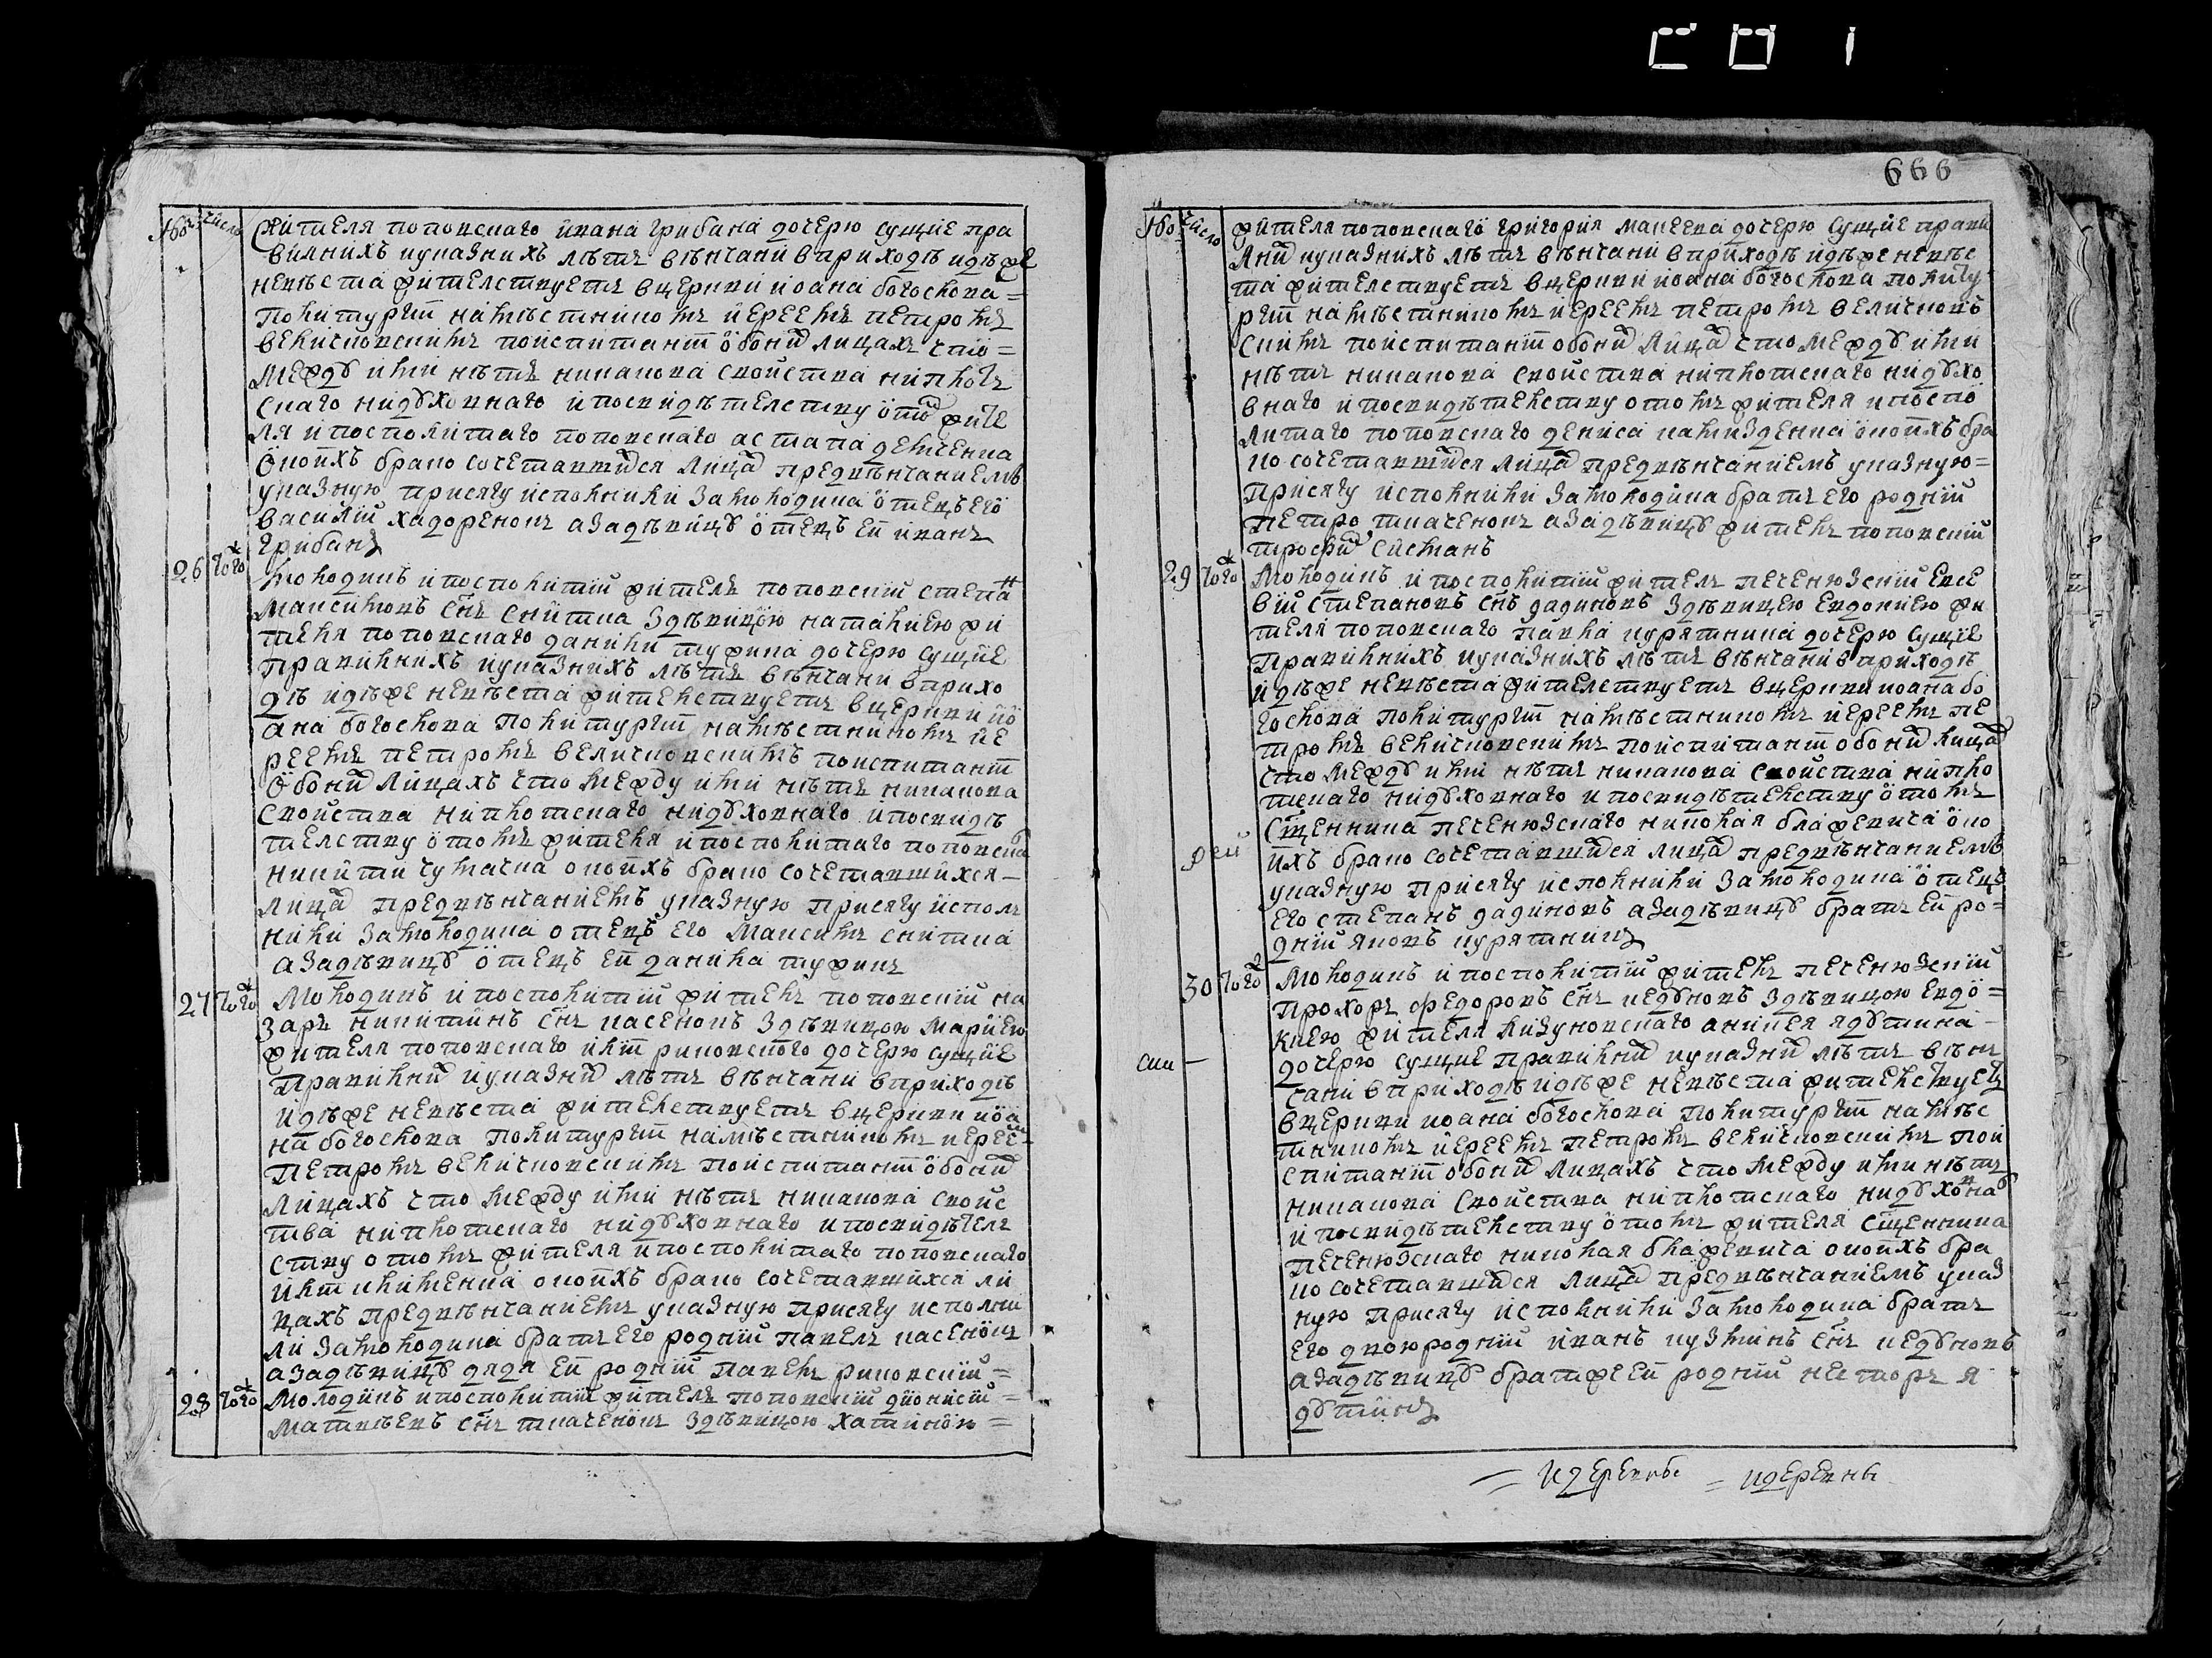 число
жителя поповскаго ивана грибана дочерю сущие пра
вилнихъ иуказнихъ лѣтъ вѣнчани вприходѣ идѣже
невѣста жителствуетъ вцеркви иоана богослова
политургіи намѣстникомъ иереемъ петромъ
величковскимъ поиспитаніи обоих лицахъ что
между ими нѣтъ никакова свойства ниплот
скаго нидуховнаго ипосвидѣтелству жите
ля ипосполитаго поповскаго астапа демченка
окоихъ брако сочетавшихся лицах предвѣнчаниемъ
указную присягу исполнили замолодика отецъ его
василій ходоренокъ азадѣвицу отецъ ей иванъ
грибанъ
26 того
молодикъ ипосполитій житель поповскій степан
максимовъ снъ сикитка здѣвицою наталиею жи
теля поповскаго данили туфика дочерю сущие
правилнихъ иуказнихъ лѣтъ вѣнчани вприхо
дѣ идѣже невѣста жителствуетъ вцеркви ио
ана богослова политургіи намѣстникомъ ие
реемъ петромъ величковскимъ поиспитаніи
обоих лицахъ что между ими нѣтъ никакова
свойства ниплотскаго нидуховнаго ипосвидѣ
телству отомъ жителя ипосполитаго поповска
никити чумаска окоихъ брако сочетавшихся
лицах предвѣнчаниемъ указную присягу испол
нили замолодика отецъ его максимъ сикитка
азадѣвицу отецъ ей данила туфикъ
27 того молодикъ ипосполитій житель поповскій на
заръ никитинъ снъ касенокъ здѣвицою мариею
жителя поповскаго иліи риковского дочерю сущие
правилних иуказних лѣтъ вѣнчани вприходѣ
идѣже невѣста жителствуетъ вцеркви иоа
на богослова политургіи намѣстникомъ иерее
петромъ величковскимъ поиспитаніи обоих
лицахъ что между ими нѣтъ никакова свойс
тва ниплотскаго нидуховнаго ипосвидѣтел
ству отомъ жителя ипосполитаго поповскаго
иліи клименка окоихъ брако сочетавшихся ли
цахъ предвѣнчаниемъ указную присягу исполни
ли замолодика братъ его родній павелъ касенокъ
азадѣвицу дядя ей родній павелъ риковскій
28 того молодикъ ипосполитій житель поповскій діонисій
матвѣевъ снъ ткаченокъ здѣвицою
666
число
жителя поповскаго григория макеева дочерю сущие прави
лних иуказнихъ лѣтъ вѣнчани вприходѣ идѣже невѣс
та жителствуетъ вцеркви иоана богослова политу
ргіи намѣстникомъ иереемъ петромъ величковъ
скимъ поиспитаніи обоих лицах что между ими
нѣтъ никакова свойства ниплотскаго нидухо
внаго ипосвидѣтелству отомъ жителя ипоспо
литаго поповскаго дениса окоихъ бра
ко сочетавшихся лицах предвѣнчаниемъ указную
присягу исполнили замолодика братъ его родній
петро ткаченокъ азадѣвицу житель поповскій
трофим
29 того молодикъ ипосполитій житель печенюзскій евсе
вій степановъ снъ дадиковъ здѣвицею евдокиею жи
теля поповскаго павла курятника дочерю сущие
правилнихъ иуказнихъ лѣтъ вѣнчани вприходѣ
идѣже невѣста жителствуетъ вцеркви иоана бо
гослова политургіи намѣстникомъ иереемъ пе
тромъ величковскимъ поиспитаніи обоих лицах
что между ими нѣтъ никакова свойства нипло
тскаго нидуховнаго ипосвидѣтелству отомъ
сщенника печенюзскаго николая блажевича око
ихъ брако сочетавшихся лицах предвѣнчаниемъ
указную присягу исполнили замолодика отецъ
его степанъ дадиковъ азадѣвицу братъ ей ро
дній яковъ курятникъ
30 того молодикъ ипосполитій житель печенюзскій
прохоръ федоровъ снъ кедуковъ здѣвицою евдо
киею жителя лизуновскаго аникея ядутина
дочерю сущие правилних иуказних лѣтъ вѣн
чани вприходѣ идѣже невѣста жителствуетъ
вцеркви иоана богослова политургіи намѣс
тникомъ иереемъ петромъ величковскимъ пои
спитаніи обоих лицахъ что между ими нѣтъ
никакова свойства ниплотскаго нидуховнаго
ипосвидѣтелству отомъ жителя сщенника
печенюзскаго николая блажевича окоихъ бра
ко сочетавшихся лицах предвѣнчаниемъ указ
ную присягу исполнили замолодика братъ
его двоюродній иванъ кузминъ снъ кедуковъ
азадѣвицу братже ей родній несторъ я
дутинъ